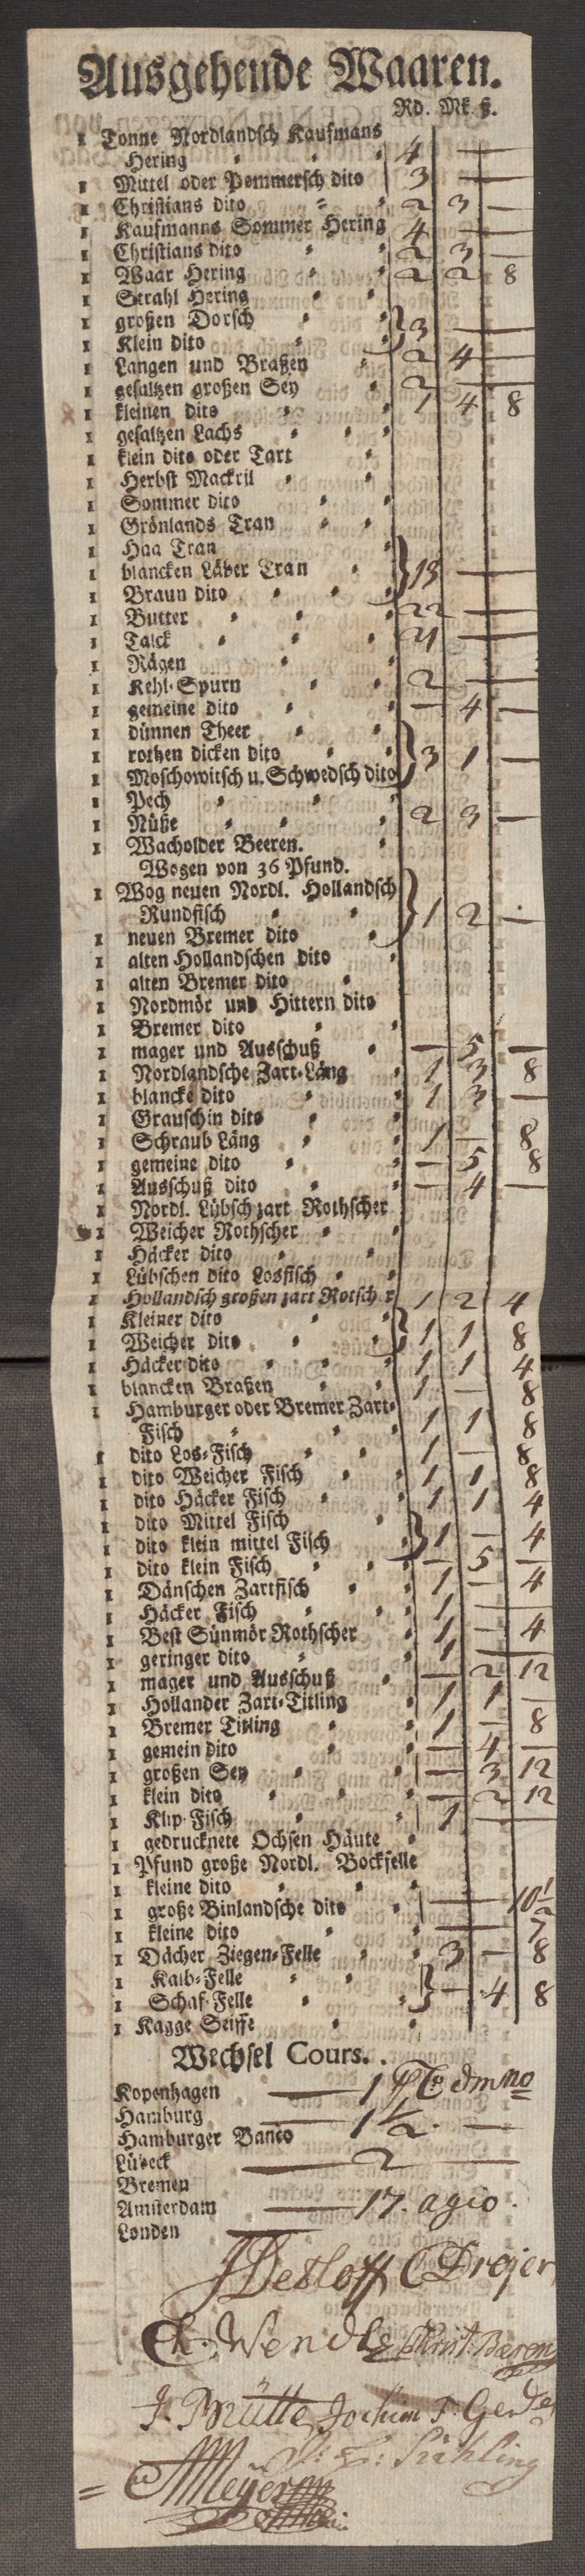 Ausgehende Waaren.
Rd. Mk. ß.
1 Tonne Nordlandsch Kaufmans
Hering 4 —
1 Mittel oder Pommersch dito 3 —
1 Christians dito 2 3 —
1 Kaufmanns Sommer Hering 4 —
1 Christians dito 2 3 —
1 Waar Hering 2 2 8
1 Strahl Hering
1 großen Dorsch } 3 —
1 Klein dito
1 Langen und Braßen 2 4 —
1 gesaltzen großen Sey 2 —
1 kleinen dito 1 4 8
1 gesaltzen Lachs
1 klein dito oder Tart
1 Herbst Mackril
1 Sommer dito
1 Grönlands Tran
1 Haa Tran
1 blancken Läber Tran } 13 —
1 Braun dito
1 Butter 22 —
1 Talck 21 —
1 Rägen
1 Kehl-Spurn 2 —
1 gemeine dito — 4 —
1 dünnen Theer
1 rothen dicken dito } 3 1 —
1 Moschowitsch u. Schwedsch dito
1 Pech
1 Nüße 2 3 —
1 Wacholder Beeren.
Wogen von 36 Pfund.
1 Wog neuen Nordl. Hollandsch
Rundfisch } 1 2 —
1 neuen Bremer dito
1 alten Hollandschen dito
1 alten Bremer dito
1 Nordmör und Hittern dito
1 Bremer dito
1 mager und Ausschuß — 5 —
1 Nordlandsche Zart-Läng 1 3 8
1 blancke dito 1 3 —
1 Grauschin dito
1 Schraub Läng 1 — 8
1 gemeine dito — 5 8
1 Ausschuß dito — 4 —
1 Nordl. Lübsch zart Rothscher
1 Weicher Rothscher
1 Häcker dito
1 Lübschen dito Losfisch
1 Hollandsch großen zart Rotscher 1 2 4
1 Kleiner dito
1 Weicher dito } 1 1 8
1 Häcker dito 1 1 4
1 blancken Braßen 1 — 8
1 Hamburger oder Bremer Zart-
Fisch 1 1 8
1 dito Los-Fisch 1 — 8
1 dito Weicher Fisch 1 1 8
1 dito Häcker Fisch 1 1 4
1 dito Mittel Fisch
1 dito klein mittel Fisch } 1 — 4
1 dito klein Fisch — 5 —
1 Dänschen Zartfisch 1 — 4
1 Häcker Fisch 1 —
1 Best Sünmör Rothscher 1 — 4
1 geringer dito 1 —
1 mager und Ausschuß — 2 12
1 Hollander Zart-Titling 1 1 —
1 Bremer Titling 1 — 8
1 gemein dito — 4 —
1 großen Sey — 3 12
1 klein dito — 2 12
1 Klip-Fisch 1 —
1 gedrucknete Ochsen Häute
1 Pfund große Nordl. Bockfelle
1 kleine dito
1 große Binlandsche dito — 10½
1 kleine dito — 7
1 Dächer Ziegen-Felle 3 — 8
1 Kalb-Felle
1 Schaf-Felle } — 4 8
1 Kagge Seiffe
Wechsel Cours.
Kopenhagen — 1
Hamburg
Hamburger Banco — 1½ —
Lübeck — 2 —
Bremen
Amsterdam — 17 agio.
Londen
JDetloff C Drejer
Ch. Wendts Christ. Baren
J. Brütte Jochim F. Gerdes
Meyer